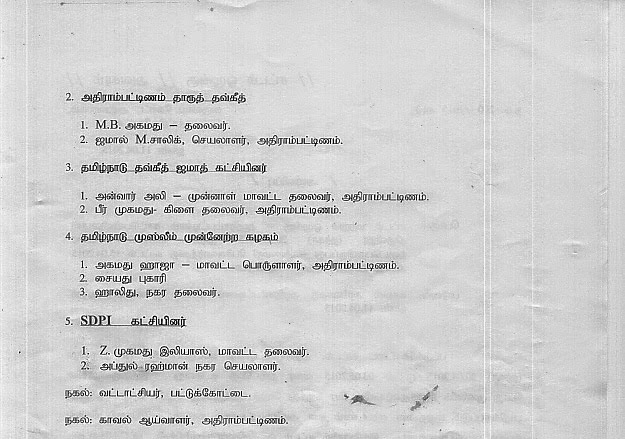 2. அதிராம்பட்டிணம் தாருத் தவ்கீத்
1. M.B. அகமது – தலைவர்.
2. ஜமால் M.சாலிக், செயலாளர், அதிராம்பட்டிணம்.
3. தமிழ்நாடு தவ்கீத் ஜமாத் கட்சியினர்
1. அன்வார் அலி – முன்னாள் மாவட்ட தலைவர், அதிராம்பட்டிணம்.
2. பீர் முகமது- கிளை தலைவர், அதிராம்பட்டிணம்.
4. தமிழ்நாடு முஸ்லீம் முன்னேற்ற கழகம்
1. அகமது ஹாஜா – மாவட்ட பொருளாளர், அதிராம்பட்டிணம்.
2. சையது புகாரி
3. ஹாலிது, நகர தலைவர்.
5. SDPI கட்சியினர்
1. Z. முகமது இலியாஸ், மாவட்ட தலைவர்.
2. அப்துல் ரஹ்மான் நகர செயலாளர்.
நகல்: வட்டாட்சியர், பட்டுக்கோட்டை.
நகல்: காவல் ஆய்வாளர், அதிராம்பட்டிணம்.